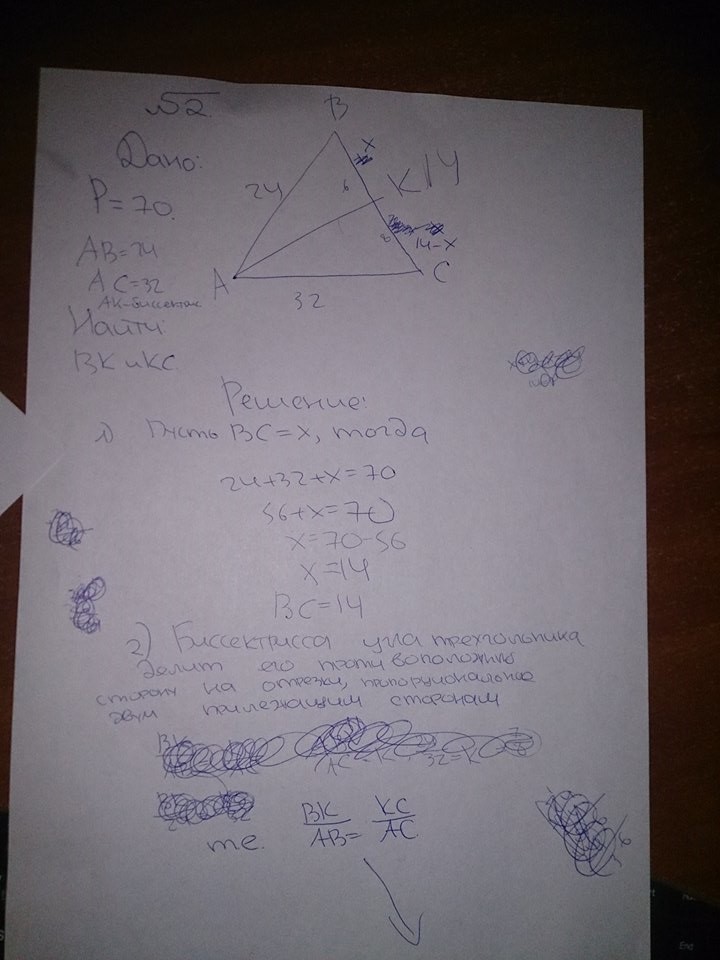 №2.
Дано:
P=70.
AB=24
AC=32
AK-биссектриса
Найти:
BK и KC.
B
x
24
6
K
14
8
14-x
A
C
32
Решение:
1) Пусть BC=x, тогда
24+32+x=70
56+x=70
x=70-56
x=14
BC=14
2) Биссектрисса угла треугольника
делит его противоположную
сторону на отрезки, пропорциональные
двум прилежащим сторонам
т.е. BK/AB = KC/AC